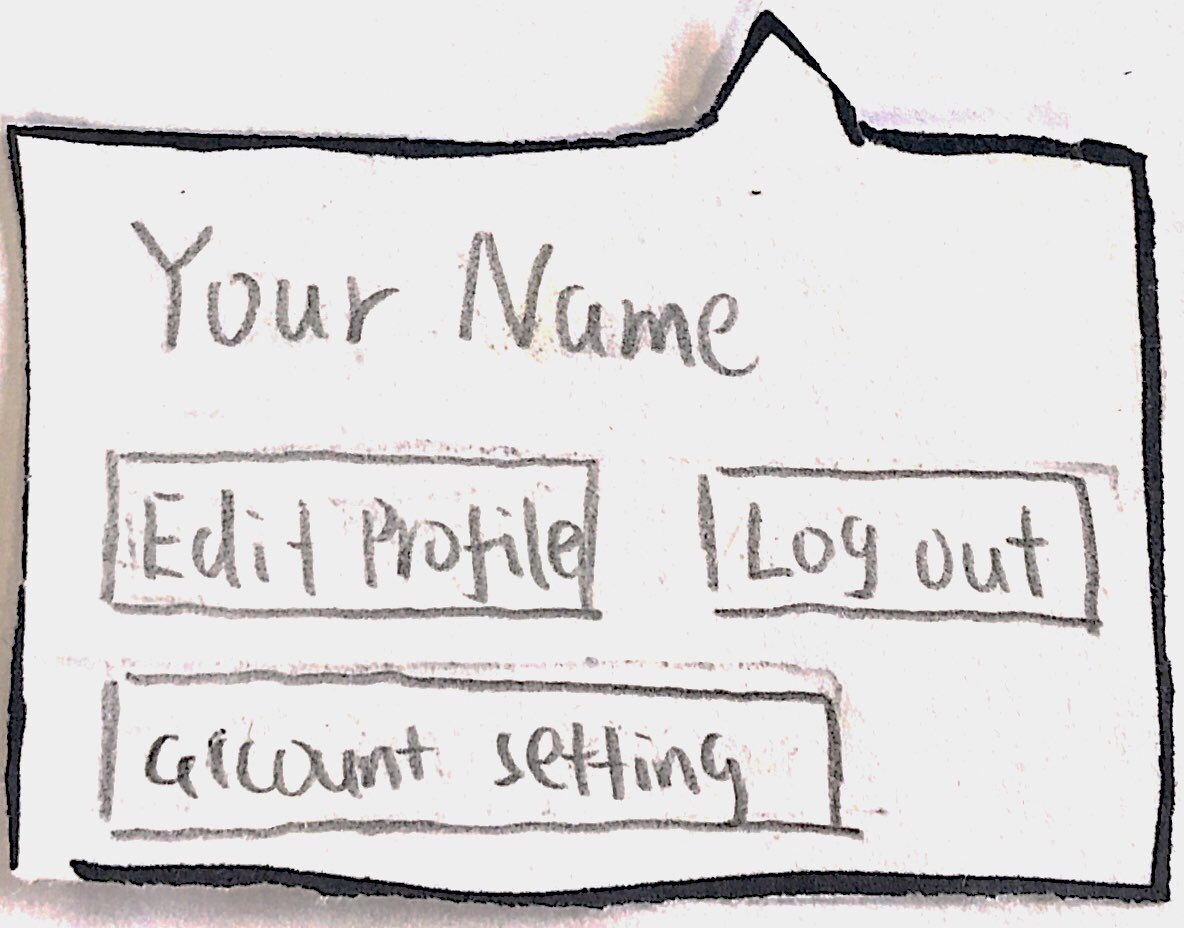 Your Name
Edit Profile
Log out
account setting